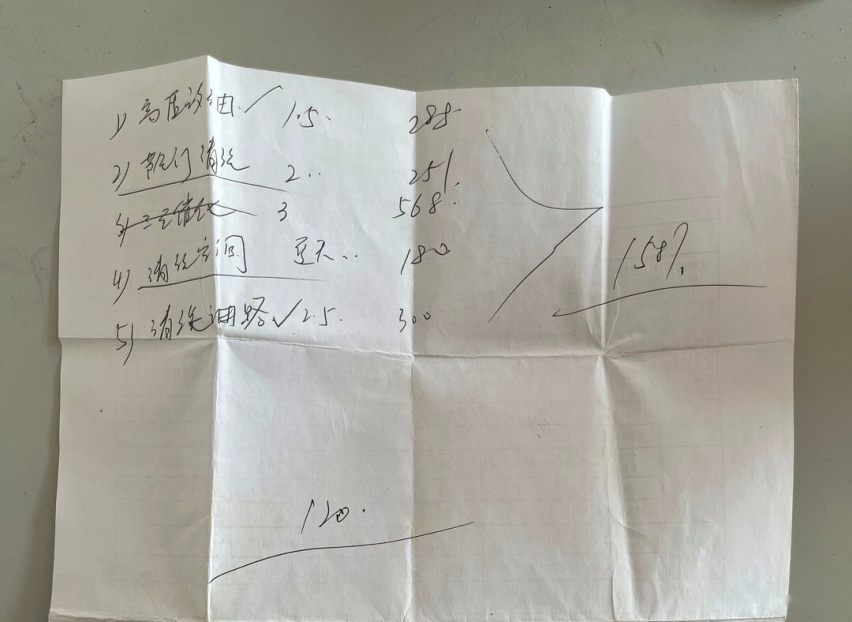 1) 高压 油 ✓ 1.5. 288
2) 节气门清洗 2.. 251.
3) 三元催化 3 568.
4) 清洗空 180
5) 清洗油路 ✓ 2.5. 300
1587.
120.